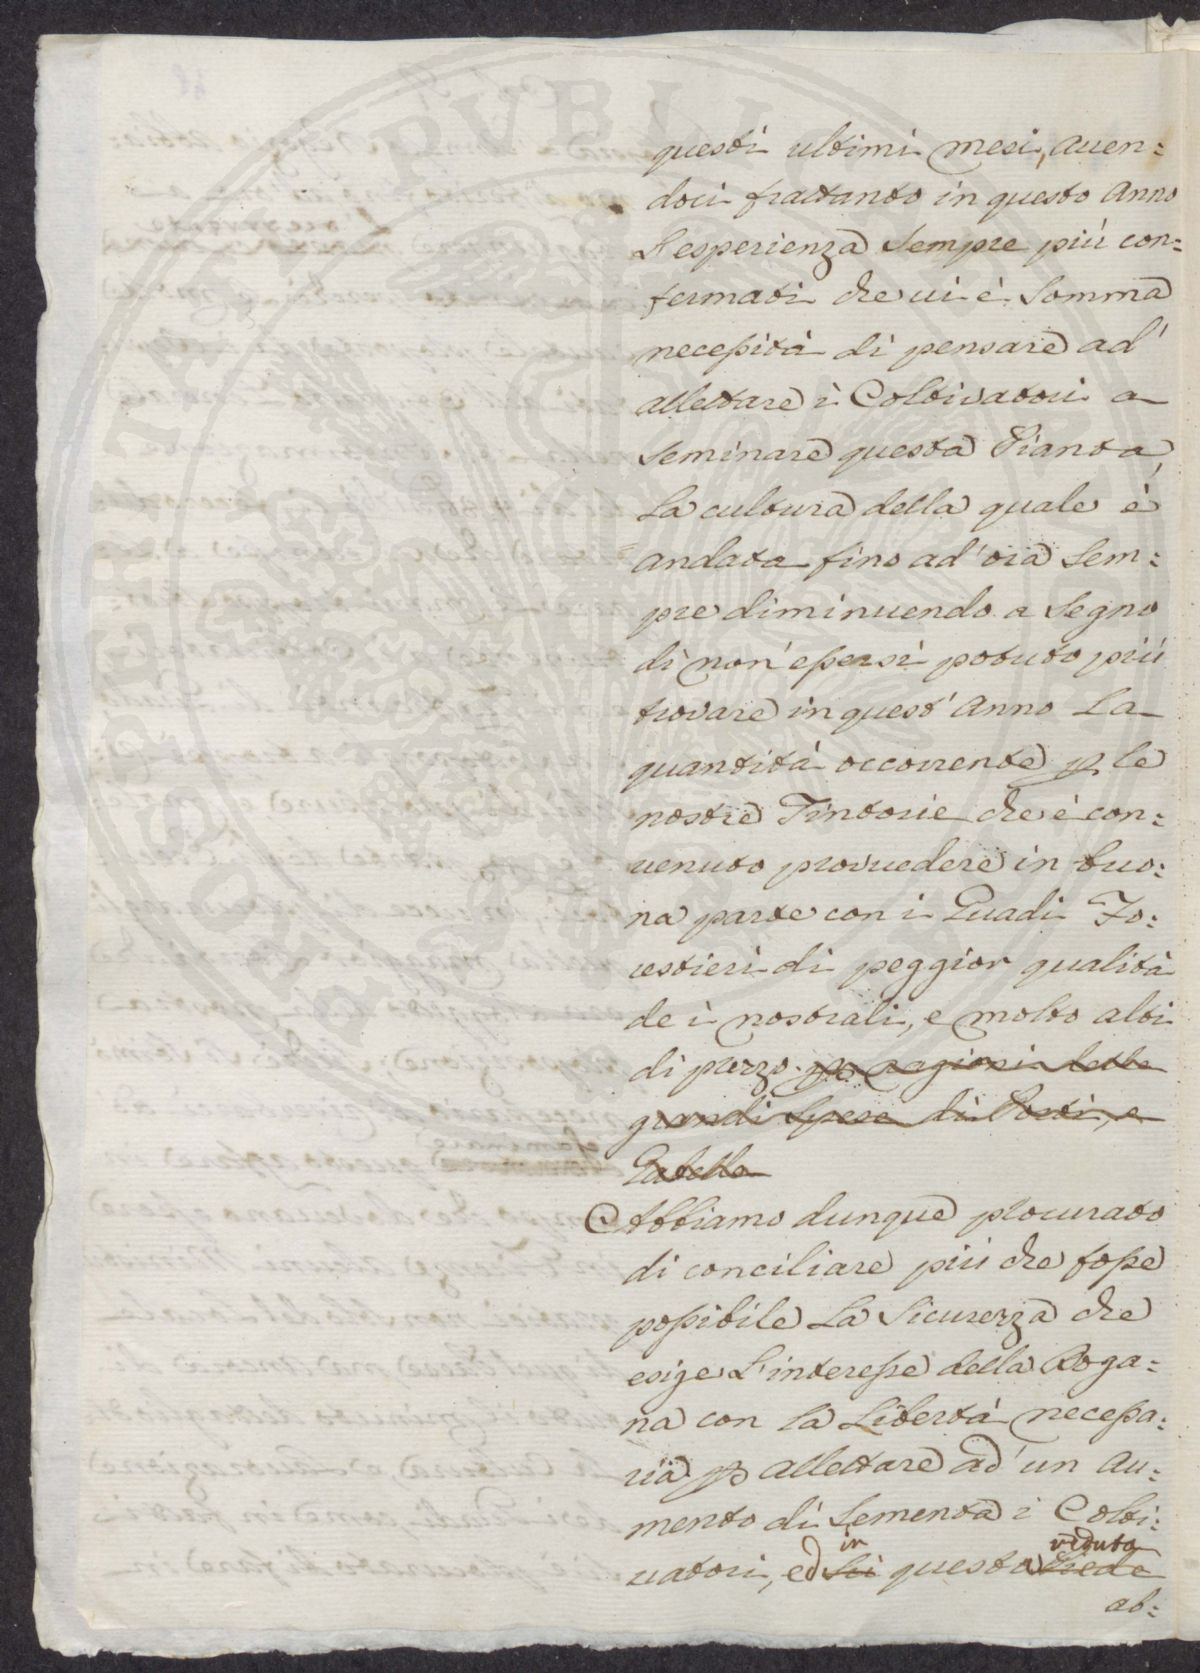 questi ultimi mesi, auen:
doci frattanto in questo Anno
L'esperienza sempre più con:
fermati che ui è somma
necessità di pensare ad'
allettare i Coltivatori a
seminare questa Pianta
La cultura della quale è
andata fino ad'ora sem:
pre diminuendo a segno
di non'essersi potuto più
trovare in quest'Anno La
quantità occorrente p le
nostre Tintorie che è con:
uenuto prouuedere in buo:
na parte con i Guadi Fo:
restieri di peggior qualità
de i nostrali, e molto alti
di prezzo. p ragioni delle
grandi spese di Porti, e
Gabelle
Abbiamo dunque procurato
di conciliare più che fosse
possibile La Sicurezza che
esige L'interesse della Doga:
na con la Libertà necessa:
ria p allettare ad'un Au:
mento di sementa i Colti:
in veduta
uatori, ed su questo Piede
ab: